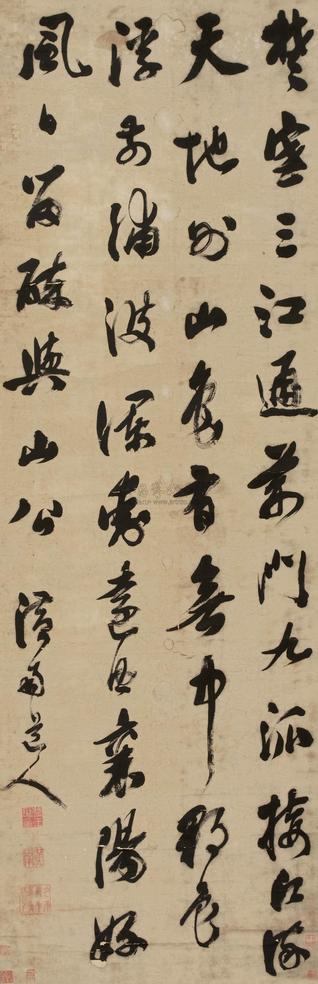 楚塞三江通荊門九派接江流
天地外山色有無中郡邑
浮前浦波瀾動遠空襄陽好
風日留醉與山公
道人